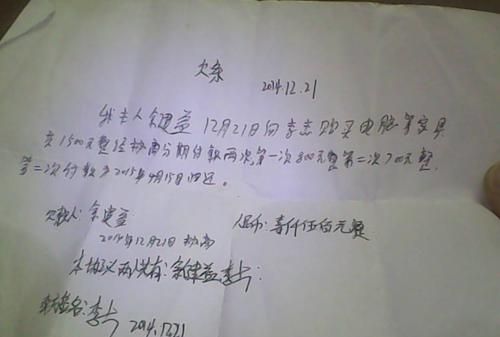 欠条
2014.12.21
我本人余建益12月21日向李志购买电脑等家具
共1500元整经协商分期付款两次第一次800元整第二次700元整.
第二次付款为2015年4月15日归还。
欠款人:余建益 人民币:壹仟伍佰元整
2014年12月21日 协商
本协议两人共有:余建益,李
李 2014.12.21